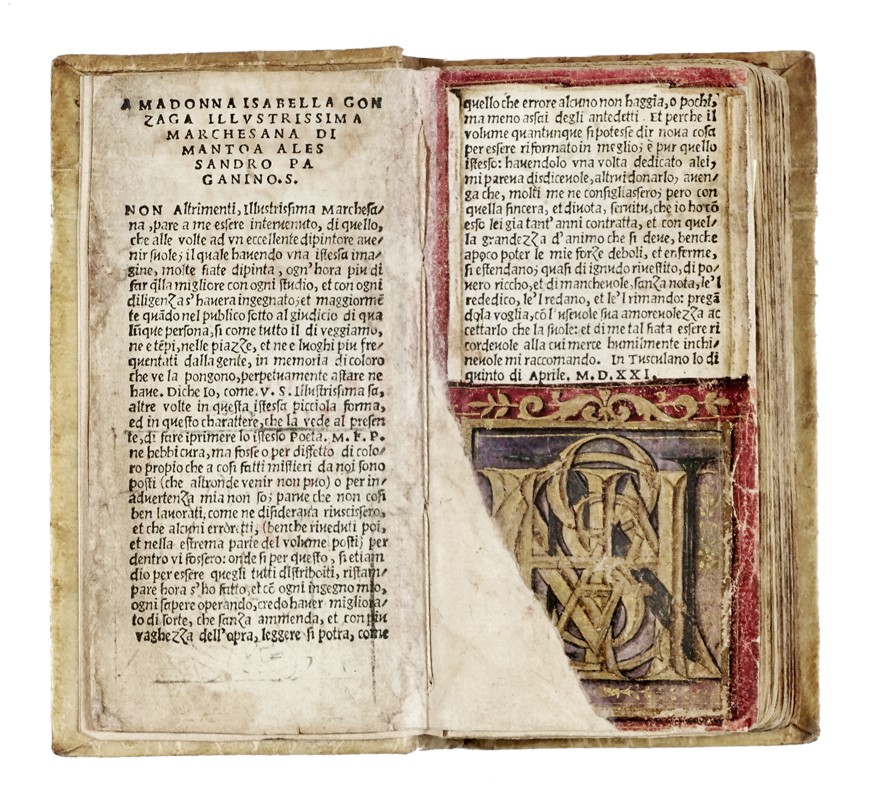 A MADONNA ISABELLA GON
ZAGA ILLVSTRISSIMA
MARCHESANA DI
MANTOA ALES
SANDRO PA
GANINO.S.
NON Altrimenti, Illustrissima Marchesa/
na, pare a me essere intervenuto, di quello,
che alle volte ad vn eccellente dipintore ave/
nir suole; il quale havendo vna istessa ima/
gine, molte fiate dipinta, ogn'hora piu di
far q̃lla migliore con ogni studio, et con ogni
diligenza s'havera ingegnato; et maggiormẽ
te quãdo nel publico sotto al giudicio di qua
lũque persona, si come tutto il di veggiamo,
ne e tẽpi, nelle piazze, et ne e luoghi piu fre/
quentati dalla gente, in memoria di coloro
che ve la pongono, perpetuamente a stare ne
have. Diche Io, come. V. S. Illustrissima sa,
altre volte in questa istessa picciola forma,
ed in questo charattere, che la vede al presen
te, di fare iprimere lo istesso Poeta. M. F. P.
ne hebbi cura, ma fosse o per diffetto di colo/
ro propio che a cosi fatti mistieri da noi sono
posti (che altronde venir non puo) o per in/
advertenza mia non so; parue che non cosi
ben lavorati, come ne disiderava riuscissero,
et che alcuni erroretti, (benche riveduti poi,
et nella estrema parte del volume posti; per
dentro vi fossero: onde si per questo, si etiam
dio per essere quegli tutti distribuiti, ristam/
pare hora s'ho fatto, et cõ ogni ingegno mio,
ogni sapere operando, credo haver migliora/
to di sorte, che sanza ammenda, et con piu
vaghezza dell'opra, leggere si potra, come
quello che errore alcuno non haggia, o pochi,
ma meno assai degli antedetti. Et perche il
volume quantunque si potesse dir nova cosa
per essere riformato in meglio; è pur quello
istesso: havendolo vna volta dedicato a lei,
mi pareva disdicevole, altrui donarlo; aven/
ga che, molti me ne consigliassero; pero con
quella sincera, et divota, servitu, che io ho cõ
esso lei gia tant'anni contratta, et con quel/
la grandezza d'animo che si deve, benche
apoco poter le mie forze deboli, et enferme,
si estendano; quasi di ignudo rivestito, di po/
vero riccho, et di manchevole, sanza nota, le'l
rededico, le'l redano, et le'l rimando: pregã
dola voglia, cõ l'usevole sua amorevolezza ac
cettarlo che la suole: et di me tal fiata essere ri
cordevole alla cui merce humilmente inchi/
nevole mi raccomando. In Tusculano lo di
quinto di Aprile. M. D. XXI.